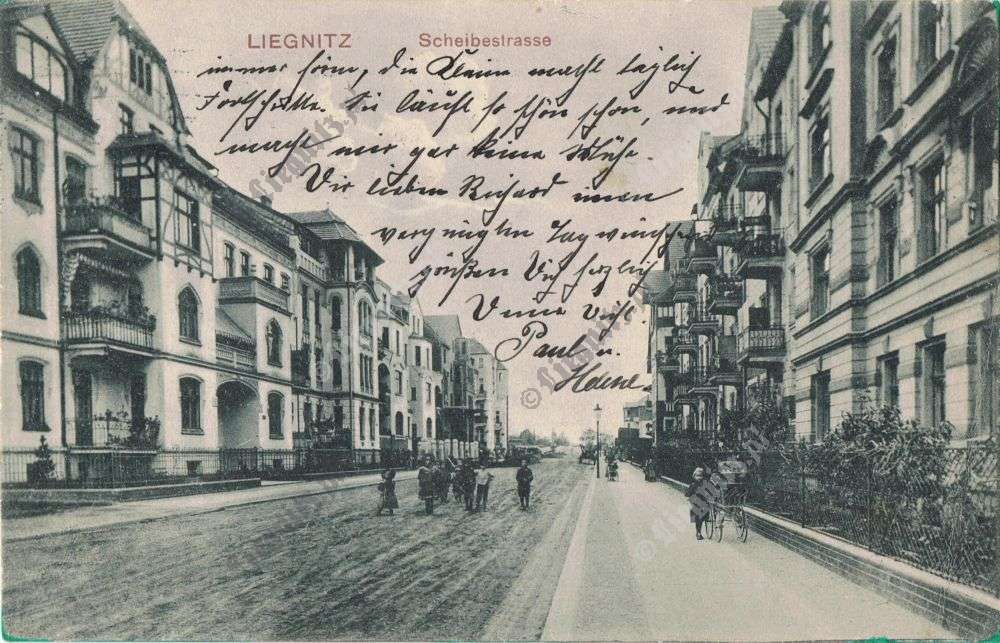 LIEGNITZ Scheibestrasse
immer hören, die Kleine macht täglich
Fortschritte. Sie läuft so schön schon, und
macht mir gar keine Mühe.
Wir lieben Richard einen
vergnügten Tag wünschen
grüßen Dich herzlich
Deine
Paul u.
Helene.
© fipnitz.pl